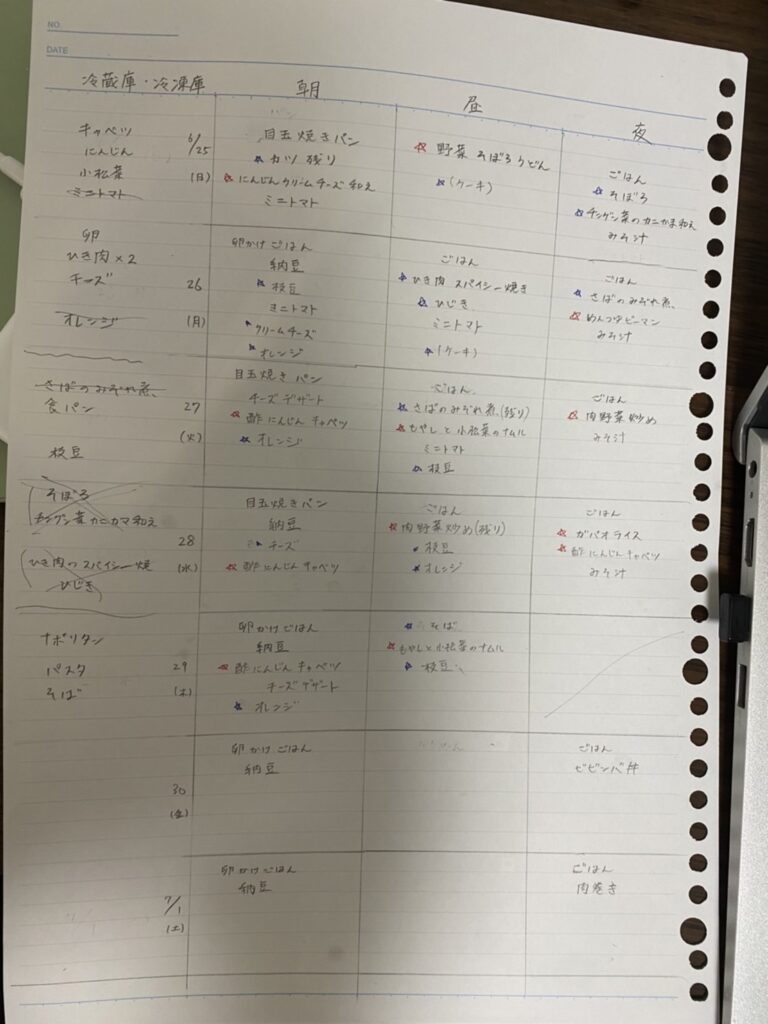 NO.
DATE
冷蔵庫・冷凍庫 朝 昼 夜
キャベツ
にんじん
小松菜
ミニトマト
6/25
(日)
目玉焼きパン
カツ残り
にんじんクリームチーズ和え
ミニトマト
野菜そぼろうどん
(ケーキ)
ごはん
そぼろ
チンゲン菜のカニかま和え
みそ汁
卵
ひき肉×2
チーズ
オレンジ
26
(月)
卵かけごはん
納豆
枝豆
ミニトマト
クリームチーズ
オレンジ
ごはん
ひき肉スパイシー焼き
ひじき
ミニトマト
(ケーキ)
ごはん
さばのみぞれ煮
めんつゆピーマン
みそ汁
さばのみぞれ煮
食パン
枝豆
27
(火)
目玉焼きパン
チーズデザート
酢にんじんキャベツ
オレンジ
ごはん
さばのみぞれ煮(残り)
もやしと小松菜のナムル
ミニトマト
枝豆
ごはん
肉野菜炒め
みそ汁
そぼろ
チンゲン菜カニカマ和え
ひき肉のスパイシー焼
ひじき
28
(水)
目玉焼きパン
納豆
チーズ
酢にんじんキャベツ
ごはん
肉野菜炒め(残り)
枝豆
オレンジ
ごはん
ガパオライス
酢にんじんキャベツ
みそ汁
ナポリタン
パスタ
そば
29
(木)
卵かけごはん
納豆
酢にんじんキャベツ
チーズデザート
オレンジ
そば
もやしと小松菜のナムル
枝豆
30
(金)
卵かけごはん
納豆
ごはん
ビビンバ丼
7/1
(土)
卵かけごはん
納豆
ごはん
肉巻き